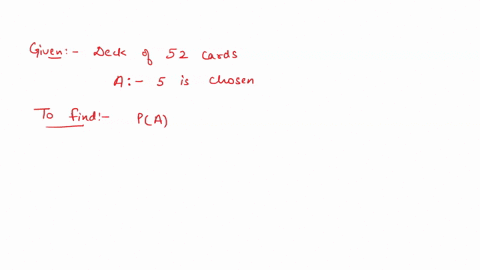 Given:- Deck of 52 cards
A:- 5 is chosen
To find:- P(A)